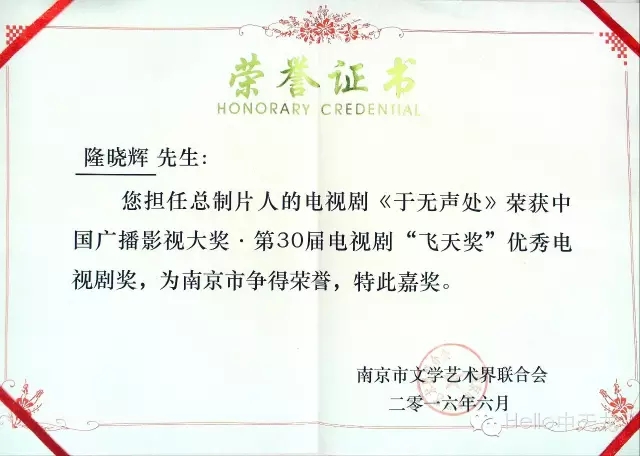 荣誉证书
HONORARY CREDENTIAL
隆晓辉 先生:
您担任总制片人的电视剧《于无声处》荣获中
国广播影视大奖·第30届电视剧“飞天奖”优秀电
视剧奖，为南京市争得荣誉，特此嘉奖。
南京市文学艺术界联合会
二零一六年六月
Hello中天